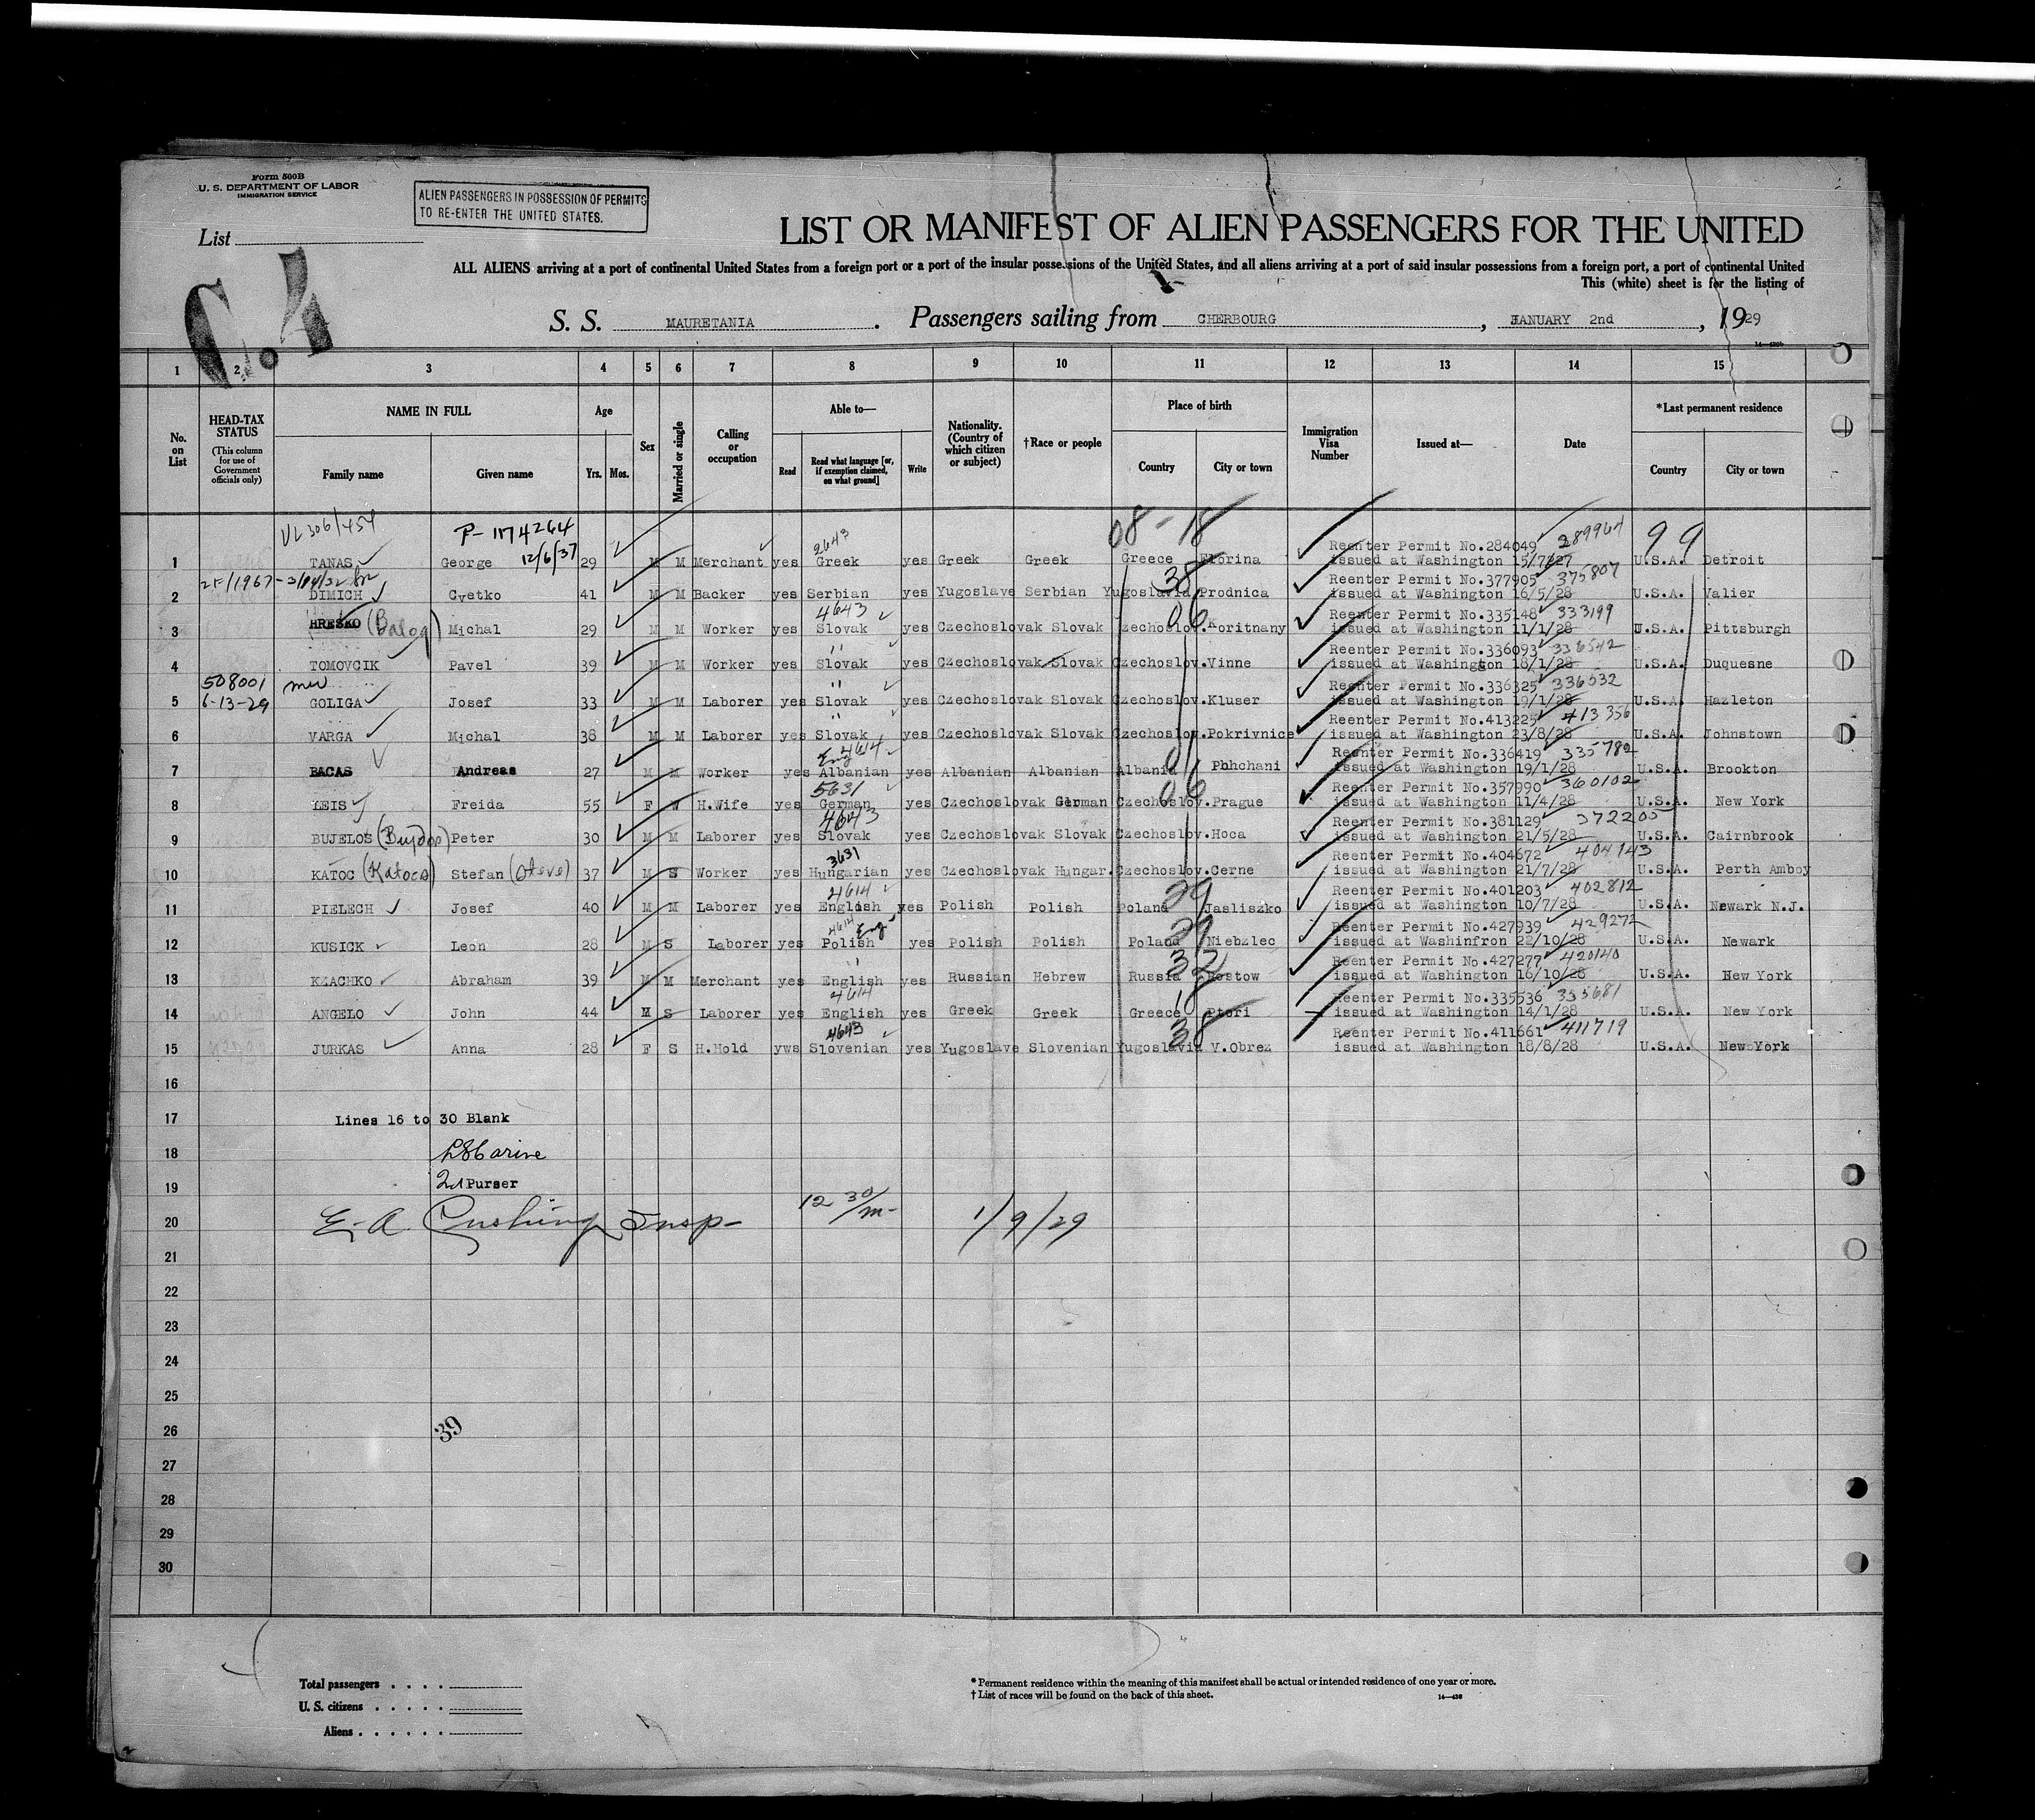 Form 500B
U. S. DEPARTMENT OF LABOR
IMMIGRATION SERVICE
ALIEN PASSENGERS IN POSSESSION OF PERMITS
TO RE-ENTER THE UNITED STATES.
List
C.4
LIST OR MANIFEST OF ALIEN PASSENGERS FOR THE UNITED
ALL ALIENS arriving at a port of continental United States from a foreign port or a port of the insular possessions of the United States, and all aliens arriving at a port of said insular possessions from a foreign port, a port of continental United
This (white) sheet is for the listing of
S. S. MAURETANIA . Passengers sailing from CHERBOURG , JANUARY 2nd , 1929
1 2 3 4 5 6 7 8 9 10 11 12 13 14 15
No. on List
HEAD-TAX STATUS (This column for use of Government officials only)
NAME IN FULL Family name Given name
Age Yrs. Mos.
Sex
Married or single
Calling or occupation
Able to— Read Read what language [or, if exemption claimed, on what ground] Write
Nationality. (Country of which citizen or subject)
†Race or people
Place of birth Country City or town
Immigration Visa Number
Issued at—
Date
*Last permanent residence Country City or town
VL 306/454 P-1174264 2643 08-18 Reenter Permit No.284049 289964 99
1 TANAS George 12/6/37 29 M M Merchant yes Greek yes Greek Greek Greece Florina issued at Washington 15/7/27 U.S.A. Detroit
38 Reenter Permit No.377905 375807
2 DIMICH Cvetko 41 M M Backer yes Serbian yes Yugoslave Serbian Yugoslavia Prodnica issued at Washington 16/5/28 U.S.A. Valier
4643 06 Reenter Permit No.335148 333199
3 HRESKO (Balog) Michal 29 M M Worker yes Slovak yes Czechoslovak Slovak Czechoslov. Koritnany issued at Washington 11/1/28 U.S.A. Pittsburgh
" Reenter Permit No.336093 336542
4 TOMOVCIK Pavel 39 M M Worker yes Slovak yes Czechoslovak Slovak Czechoslov.Vinne issued at Washingson 18/1/28 U.S.A. Duquesne
508001 " Reenter Permit No.336325 336532
5 6-13-29 GOLIGA Josef 33 M M Laborer yes Slovak yes Czechoslovak Slovak Czechoslov.Kluser issued at Washington 19/1/28 U.S.A. Hazleton
" Reenter Permit No.413225 413356
6 VARGA Michal 38 M M Laborer yes Slovak yes Czechoslovak Slovak Czechoslov.Pokrivnice issued at Washington 23/8/28 U.S.A. Johnstown
Eng 4614 01 Reenter Permit No.336419 335782
7 BACAS Andreas 27 M M Worker yes Albanian yes Albanian Albanian Albania Phhchani issued at Washington 19/1/28 U.S.A. Brookton
5631 06 Reenter Permit No.357990 360102
8 LEIS Freida 55 F W H.Wife yes German yes Czechoslovak German Czechoslov.Prague issued at Washington 11/4/28 U.S.A. New York
4643 Reenter Permit No.381129 372205
9 BUJELOS (Bujdos) Peter 30 M M Laborer yes Slovak yes Czechoslovak Slovak Czechoslov.Hoca issued at Washington 21/5/28 U.S.A. Cairnbrook
3631 Reenter Permit No.404672 404143
10 KATOC (Katocs) Stefan (Steve) 37 M S Worker yes Hungarian yes Czechoslovak Hungar. Czechoslov.Cerne issued at Washington 21/7/28 U.S.A. Perth Amboy
4614 29 Reenter Permit No.401203 402812
11 PIELECH Josef 40 M M Laborer yes English yes Polish Polish Poland Jasliszko issued at Washington 10/7/28 U.S.A. Newark N.J.
4614 Eng 29 Reenter Permit No.427939 429272
12 KUSICK Leon 28 M S Laborer yes Polish yes Polish Polish Poland Niebzlec issued at Washinfron 22/10/28 U.S.A. Newark
" 32 Reenter Permit No.427277 420140
13 KZACHKO Abraham 39 M M Merchant yes English yes Russian Hebrew Russia Rostow issued at Washington 16/10/28 U.S.A. New York
4614 18 Reenter Permit No.335536 335681
14 ANGELO John 44 M S Laborer yes English yes Greek Greek Greece Ptori issued at Washington 14/1/28 U.S.A. New York
4643 38 Reenter Permit No.411661 411719
15 JURKAS Anna 28 F S H.Hold yws Slovenian yes Yugoslave Slovenian Yugoslavia V.Obrez issued at Washington 18/8/28 U.S.A. New York
16
17 Lines 16 to 30 Blank
18
19 2nd Purser
20 E. A. Cushing Insp- 12 30/m- 1/9/29
21
22
23
24
25
26 39
27
28
29
30
Total passengers
U. S. citizens
Aliens
* Permanent residence within the meaning of this manifest shall be actual or intended residence of one year or more.
† List of races will be found on the back of this sheet.